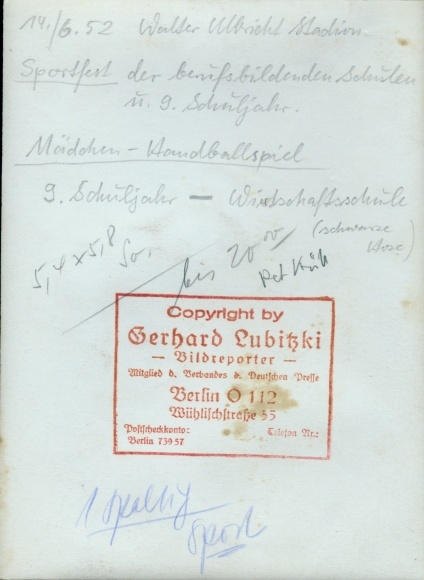 14./6.52 Walter Ulbricht Stadion
Sportfest der berufsbildenden Schulen
u. 9. Schuljahr.
Mädchen - Handballspiel
9. Schuljahr — Wirtschaftsschule
(schwarze Hose)
5,4 x 5,8
bis 20 00
Copyright by
Gerhard Lubitzki
— Bildreporter —
Mitglied d. Verbandes d. Deutschen Presse
Berlin O 112
Wühlischstraße 55
Postscheckkonto:
Berlin 739 57
Telefon Nr.:
1 spaltig
Sport